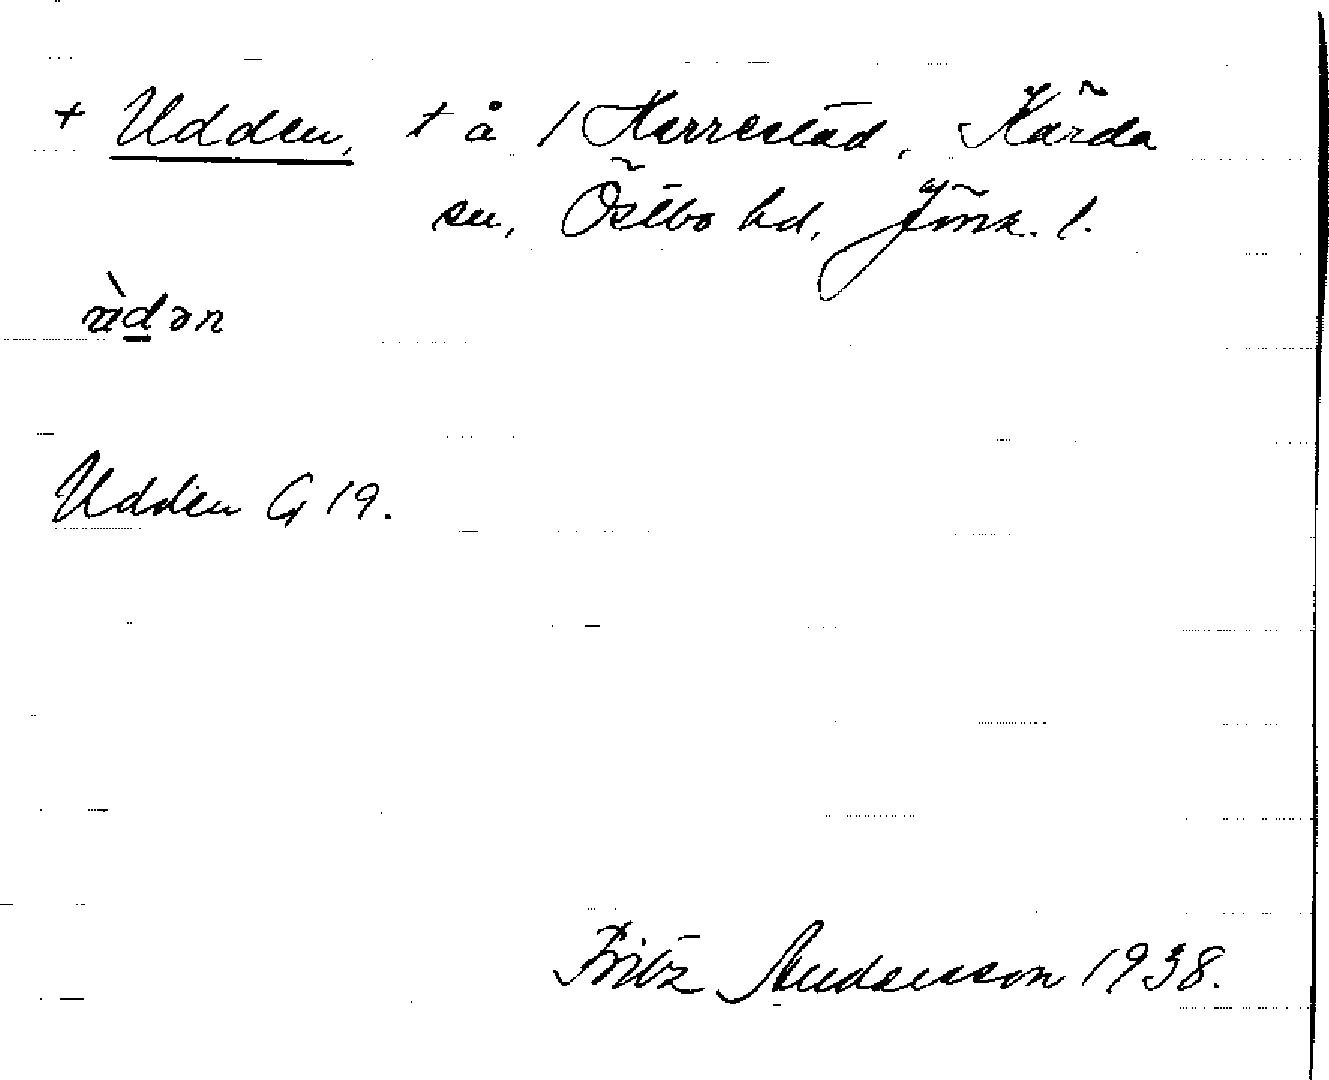 + Udden, t å / Herrestad, Kärda
sn, Östbo hd, Jönk. l.
ùdən
Udden G 19.
Fritz Andersson 1938.